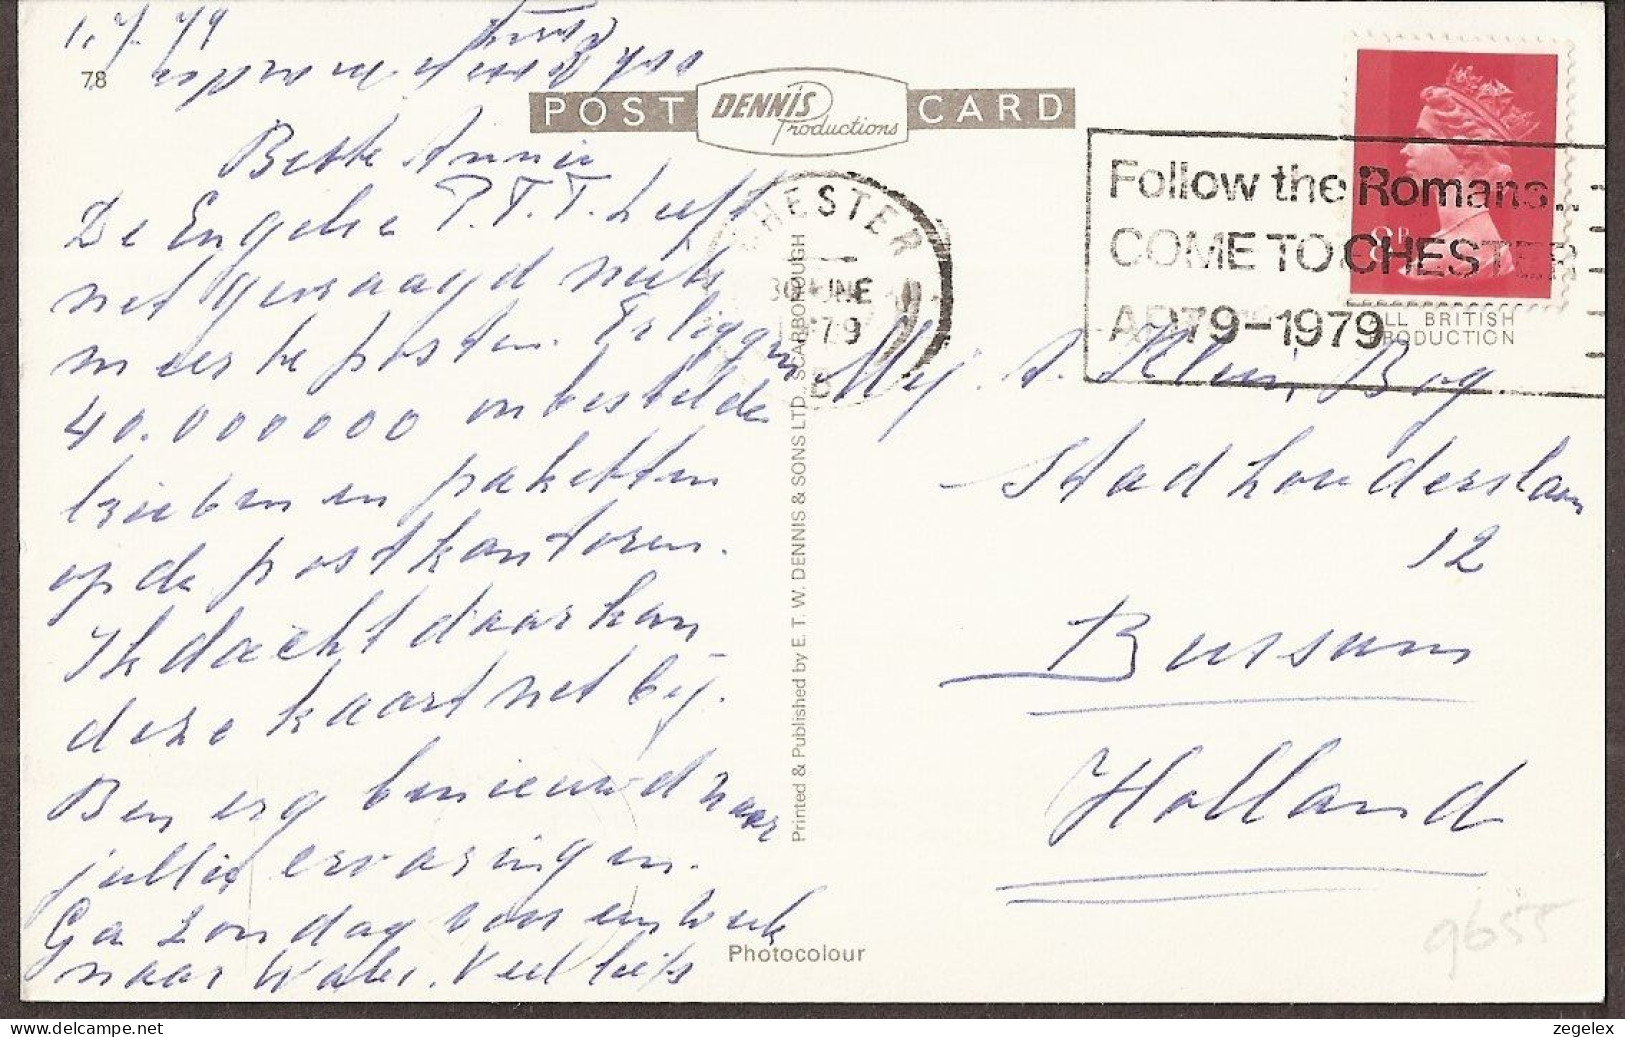 1.7.79
78
POST DENNIS Productions CARD
Beste Annie
De Engelse P.T.T. heeft
net gevraagd niets
meer te posten. Er liggen
40.000000 onbestelde
brieven en paketten
op de postkantoren.
Ik dacht daar kan
deze kaart net bij.
Ben erg benieuwd naar
jullie ervaringen.
Ga zondag voor een week
naar Wales. Veel liefs
ook
CHESTER
30 JUNE
1979
Follow the Romans..
COME TO CHESTER
AD79-1979
8P
ALL BRITISH
PRODUCTION
Mej. A. Klein, Bog.
Stadhouderslaan
12
Bussum
Holland
Printed & Published by E. T. W. DENNIS & SONS LTD., SCARBOROUGH
Photocolour
9655
zegelex
www.delcampe.net